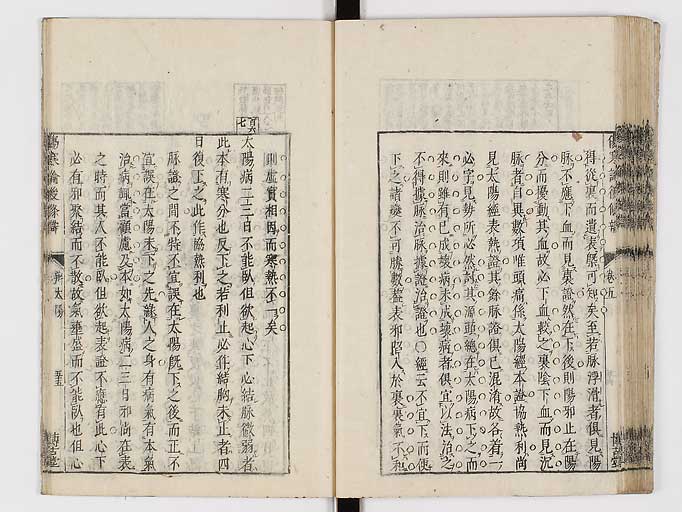 得從裏而遺表槩可知矣至若脉浮滑者俱見陽
脉不應下血而見裏證然在下後則陽邪止在陽
分而擾動其血故必下血較之裏陰下血而見沉
脉者自異數項唯頭痛係太陽經本證協熱利尚
見太陽經表熱證其餘脉證俱已混淆故各着一
必字見勢所必然討其源頭總在太陽病下之而
來則雖有已成壞病未成壞病者俱宜以法治之
不得據脉治脉據證治證也○經云不宜下而便
下之諸變不可勝數蓋表邪陷入於裏裏氣不和
則虛實相因而寒熱不一矣
太陽病二三日不能臥但欲起心下必結脉微弱者
此本有寒分也反下之若利止必作結胸未止者四
日復下之此作協熱利也
脉證之間不特不宜誤在太陽旣下之後而正不
宜誤在太陽未下之先緣人之身有病氣有本氣
治病輒當顧慮及本如太陽病二三日邪尚在表
之時而其人不能臥但欲起表證不應有此心下
必有邪聚結而不散故氣壅盛而不能臥也但心
傷寒論後條辯
卷五
辨太陽
博古堂